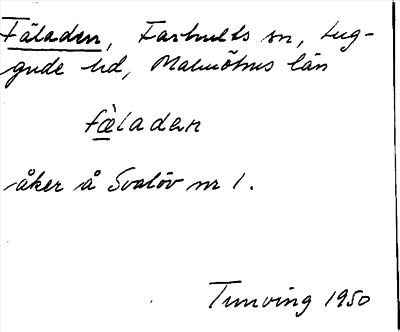 Fäladen, Farhults sn, Lug-
gude hd, Malmöhus län
fæ̀ladən
åker å Svalöv nr 1.
Tunving 1950